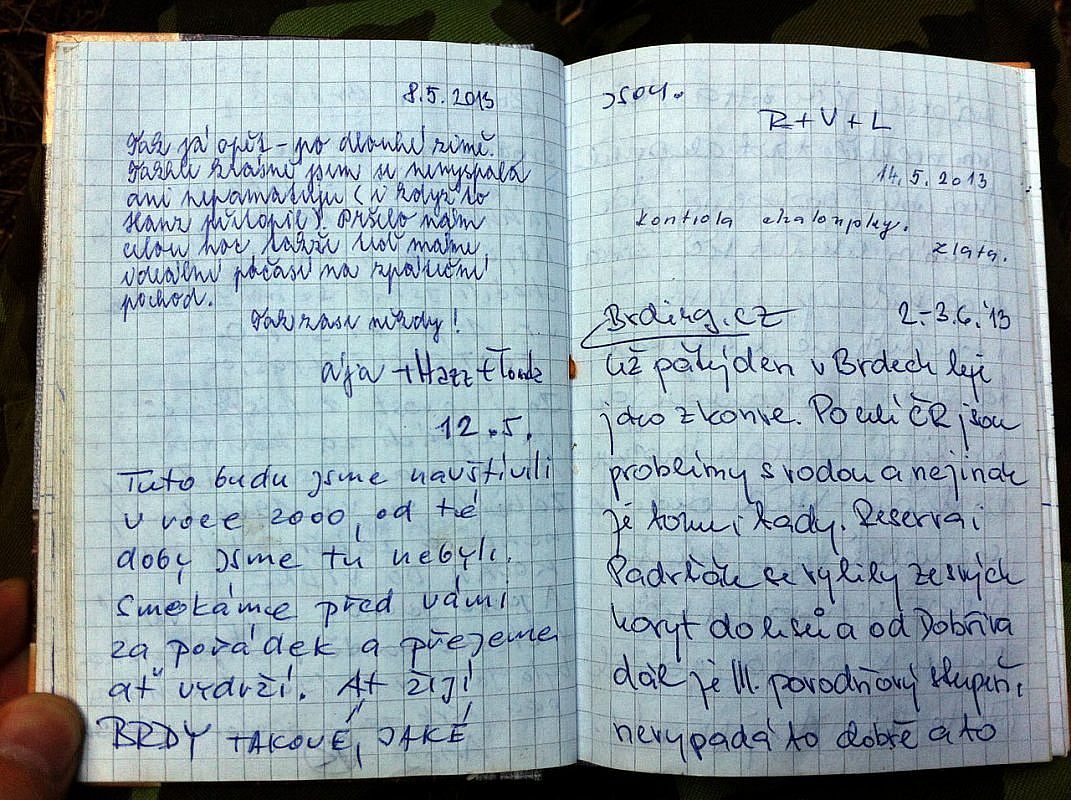 8.5.2013
Tak já opět - po dlouhé zimě.
Takhle krásně jsem se nevyspala
ani nepamatuju (i když to
Hanz přitopil). Pršelo nám
celou noc, takže teď máme
ideální počasí na zpáteční
pochod.
Tak zase někdy!
aja + Hazz + Tonda
12.5.
Tuto budu jsme navštívili
v roce 2000, od té
doby jsme tu nebyli.
Smekáme před vámi
za pořádek a přejeme
ať vydrží. Ať žijí
BRDY TAKOVÉ, JAKÉ
JSOU.
R + V + L
14.5.2013
kontrola chaloupky.
zlata.
Brding.cz 2.-3.6.'13
Už pátý den v Brdech leje
jako z konve. Po celé ČR jsou
problémy s vodou a nejinak
je tomu i tady. Reserva i
Padrťák se vylily ze svých
koryt do lesů a od Dobříva
dál je III. povodňový stupeň,
nevypadá to dobře a to